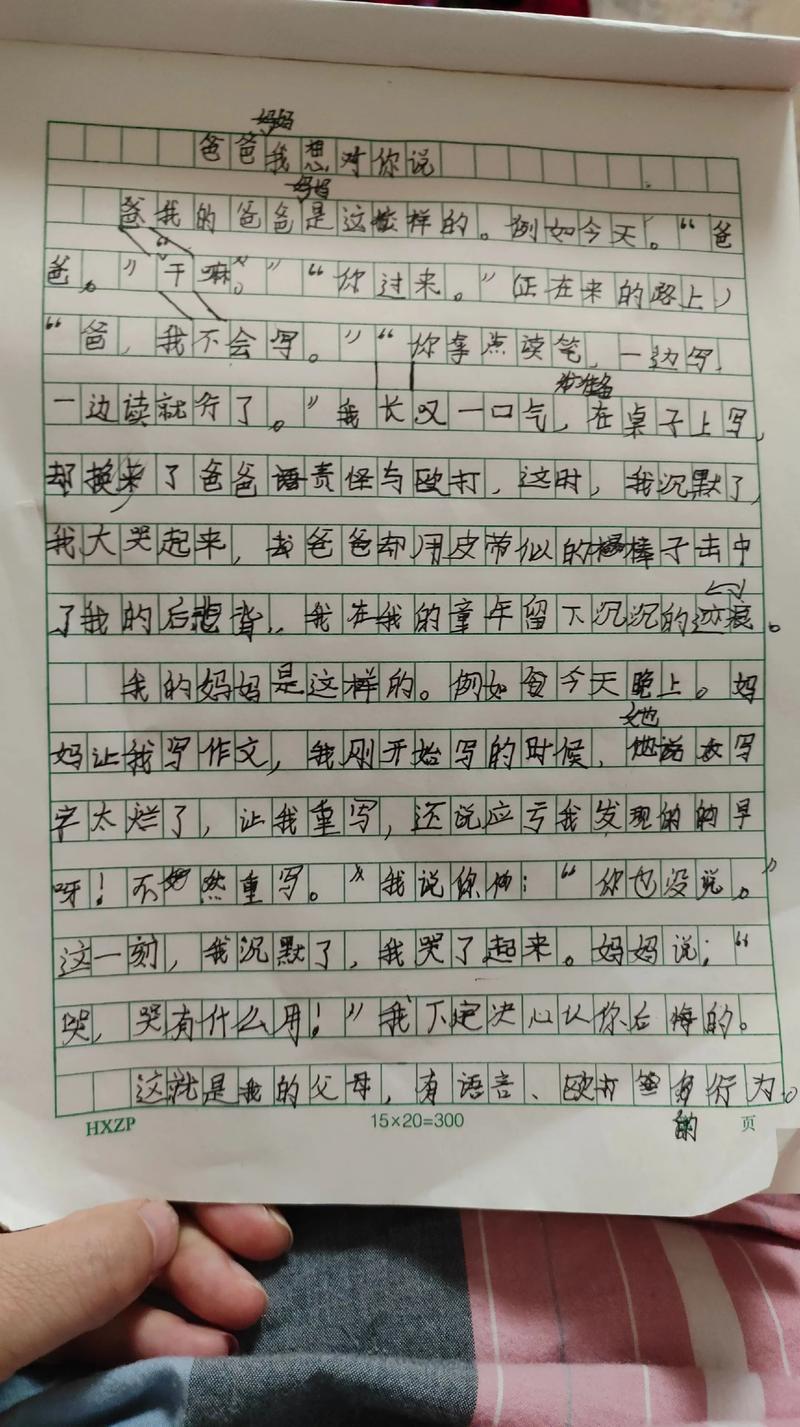 妈妈
爸爸我想对你说
妈妈
我的爸爸是这样的。例如今天。“爸
爸。”“干嘛。”“你过来。”(正在来的路上)
“爸，我不会写。”“你拿点读笔，一边写，
准备
一边读就行了。”我长叹一口气，在桌子上写，
却换来了爸爸语责怪与欧打，这时，我沉默了，
我大哭起来，爸爸却用皮带似的棒子击中
了我的后背，我在我的童年留下沉沉的迹痕。
我的妈妈是这样的。例如今天晚上。妈
妈让我写作文，我刚开始写的时候，
她
说写
字太烂了，让我重写，还说应亏我发现的早
呀！不然重写。”我说你：“你也没说。”
这一刻，我沉默了，我哭了起来。妈妈说；“
哭，哭有什么用！”我下定决心认你后悔的。
这就是我的父母，有语言、欧打等行为。
的
HXZP
15×20=300
页